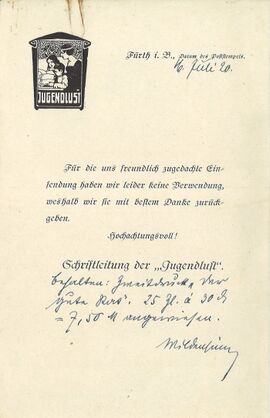 JUGENDLUST
Fürth i. B., Datum des Poststempels.
6. Juli 20.
Für die uns freundlich zugedachte Ein-
sendung haben wir leider keine Verwendung,
weshalb wir sie mit bestem Danke zurück-
geben.
Hochachtungsvoll!
Schriftleitung der „Jugendlust".
behalten: Zweitdruck „Der
gute Rat". 25 Zl. á 30 ₰
= 7,50 M angewiesen.